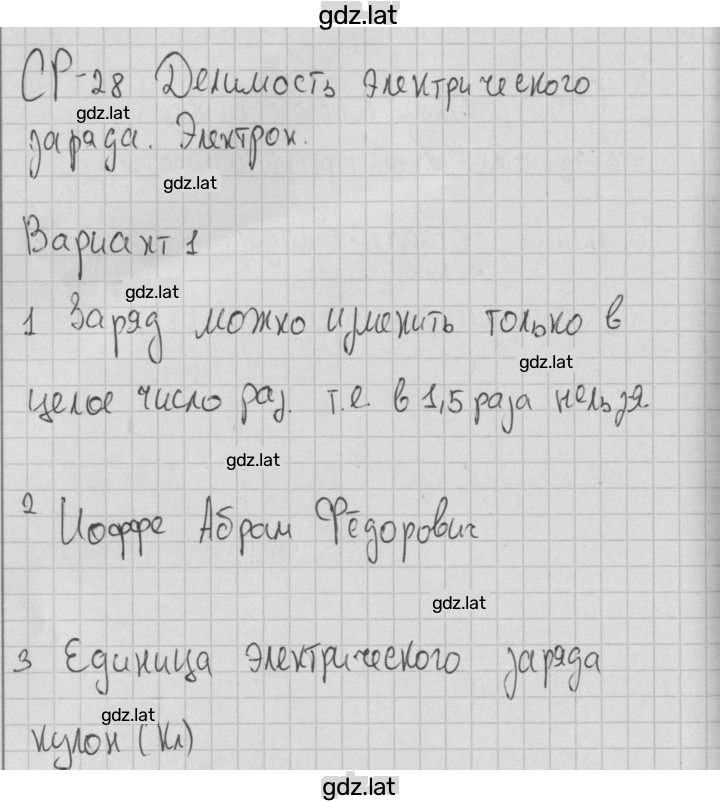 gdz.lat
СР-28 Делимость электрического
gdz.lat
заряда. Электрон.
gdz.lat
Вариант 1
gdz.lat
1 Заряд можно изменить только в
gdz.lat
целое число раз. т.е. в 1,5 раза нельзя.
gdz.lat
2 Иоффе Абрам Фёдорович
gdz.lat
3 Единица электрического заряда
gdz.lat
кулон (Кл)
gdz.lat